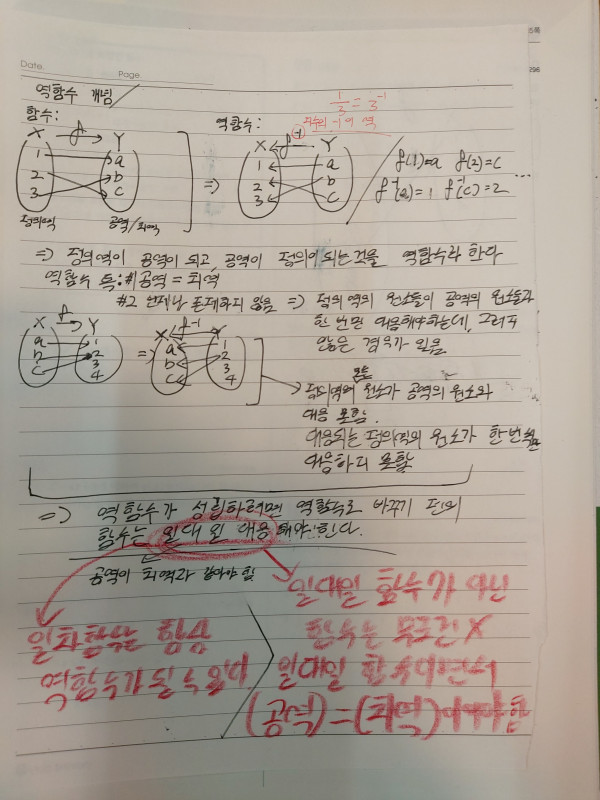 Date.
Page.
296
역함수 개념
함수:
X f Y
1 a
2 b
3 c
정의역 공역/치역
⇒
역함수:
1/3 = 3⁻¹
지수의 -1이 역
X f⁻¹ Y
1 a
2 b
3 c
f(1)=a f(2)=c
f⁻¹(a)=1 f⁻¹(c)=2
⇒ 정의역이 공역이 되고 공역이 정의역이 되는것을 역함수라 한다
역함수 특: #1 공역 = 치역
#2 언제나 존재하지 않음 ⇒ 정의역의 원소들이 공역의 원소들과
한 번만 대응해야하는데, 그러지
않은 경우가 있음
X f Y
a 1
b 2
c 3
4
⇒
X f⁻¹ Y
a 1
b 2
c 3
4
모든
정의역의 원소가 공역의 원소와
대응 못함.
대응되는 정의역의 원소가 한번씩만
대응하지 못함
⇒ 역함수가 성립하려면 역함수로 바꾸기 전의
함수는 일대일 대응해야 한다.
공역이 치역과 같아야 함
일차함수는 항상
역함수가 될 수 있다
일대일 함수가 아닌
함수는 무조건 X
일대일 함수이면서
(공역)=(치역)이어야 함